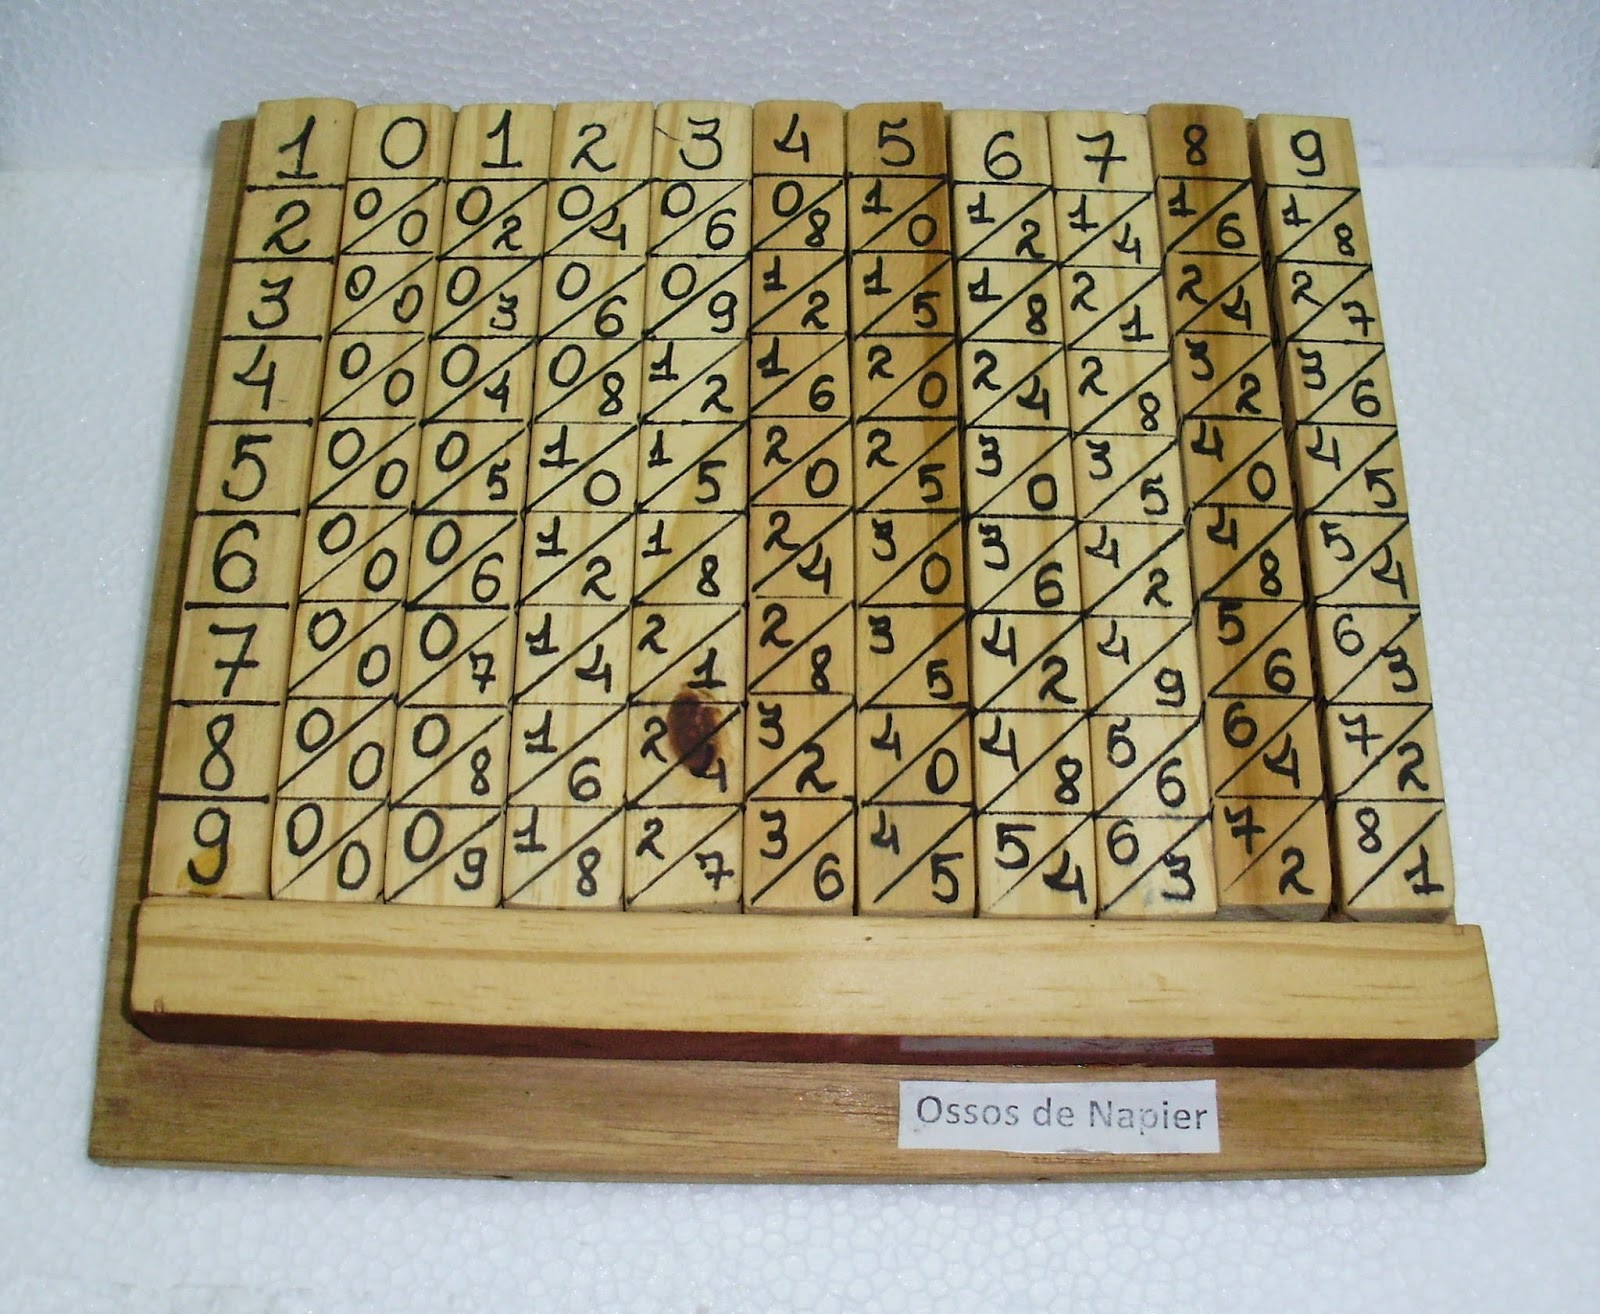 1 0 1 2 3 4 5 6 7 8 9
2 0/0 0/2 0/4 0/6 0/8 1/0 1/2 1/4 1/6 1/8
3 0/0 0/3 0/6 0/9 1/2 1/5 1/8 2/1 2/4 2/7
4 0/0 0/4 0/8 1/2 1/6 2/0 2/4 2/8 3/2 3/6
5 0/0 0/5 1/0 1/5 2/0 2/5 3/0 3/5 4/0 4/5
6 0/0 0/6 1/2 1/8 2/4 3/0 3/6 4/2 4/8 5/4
7 0/0 0/7 1/4 2/1 2/8 3/5 4/2 4/9 5/6 6/3
8 0/0 0/8 1/6 2/4 3/2 4/0 4/8 5/6 6/4 7/2
9 0/0 0/9 1/8 2/7 3/6 4/5 5/4 6/3 7/2 8/1
Ossos de Napier